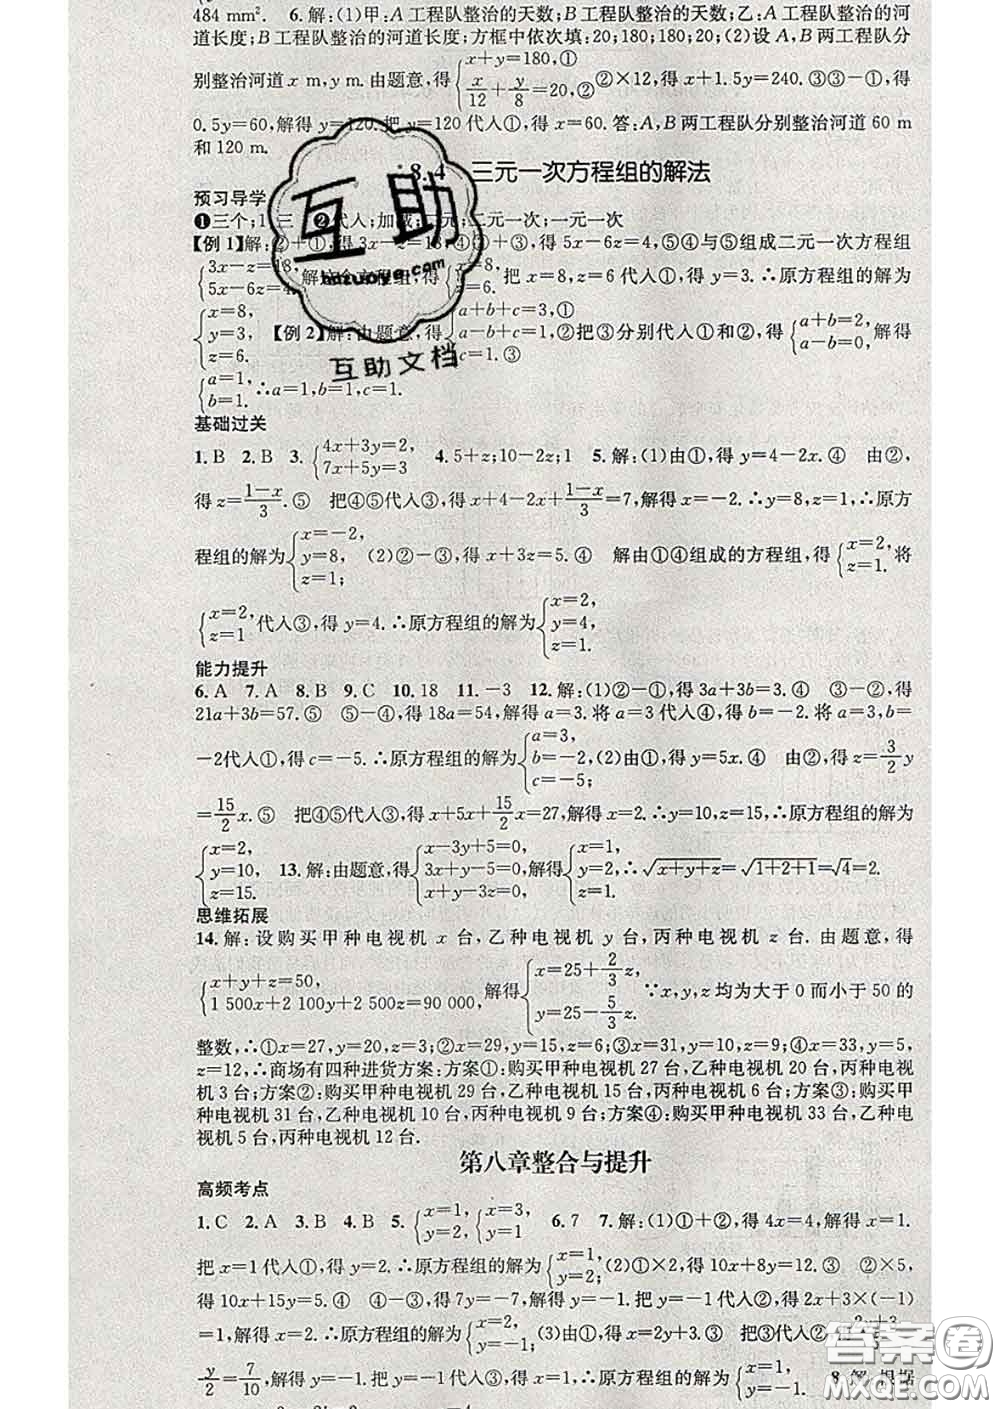 484 mm². 6. 解:(1)甲:A工程队整治的天数;B工程队整治的天数;乙:A工程队整治的河
道长度;B工程队整治的河道长度;方框中依次填:20;180;180;20;(2)设A,B两工程队分
别整治河道 x m,y m. 由题意,得{x+y=180,① x/12+y/8=20,② ②×12,得 x+1.5y=240.③③-①,得
0.5y=60,解得 y=120.把 y=120代入①,得 x=60. 答:A,B两工程队分别整治河道 60 m
和120 m.
8.4 三元一次方程组的解法
预习导学
❶三个;1 三 ❷代入;加减;三元;二元一次;一元一次
【例1】解:②+①,得 3x-z=18,④①+③,得 5x-6z=4,⑤④与⑤组成二元一次方程组
{3x-z=18, 5x-6z=4. 解 方程组,得{x=8, z=6. 把 x=8,z=6代入①,得 y=3. ∴原方程组的解为
{x=8, y=3, z=6. 【例2】解:由题意,得{a+b+c=3,① a-b+c=1,② c=1.③ 把③分别代入①和②,得{a+b=2, a-b=0, 解得
{a=1, b=1. ∴a=1,b=1,c=1.
基础过关
1. B 2. B 3. {4x+3y=2, 7x+5y=3 4. 5+z;10-2z;1 5. 解:(1)由①,得 y=4-2x.④ 由②,
得 z=(1-x)/3.⑤ 把④⑤代入③,得 x+4-2x+(1-x)/3=7,解得 x=-2. ∴y=8,z=1, ∴原方
程组的解为{x=-2, y=8, z=1; (2)②-③,得 x+3z=5.④ 解由①④组成的方程组,得{x=2, z=1. 将
{x=2, z=1 代入③,得 y=4. ∴原方程组的解为{x=2, y=4, z=1.
能力提升
6. A 7. A 8. B 9. C 10. 18 11. -3 12. 解:(1)②-①,得 3a+3b=3.④ ③-②,得
21a+3b=57.⑤ ⑤-④,得 18a=54,解得 a=3. 将 a=3代入④,得 b=-2. 将 a=3,b=
-2代入①,得 c=-5. ∴原方程组的解为{a=3, b=-2, c=-5; (2)由①,得 y=5x.④ 由②,得 z=3/2 y
=15/2 x.⑤ 把④⑤代入③,得 x+5x+15/2 x=27,解得 x=2. ∴y=10,z=15,∴原方程组的解为
{x=2, y=10, z=15. 13. 解:由题意,得{x-3y+5=0, 3x+y-5=0, x+y-3z=0, 解得{x=1, y=2, z=1. ∴√(x+y+z)=√(1+2+1)=√4=2.
思维拓展
14. 解:设购买甲种电视机 x 台,乙种电视机 y 台,丙种电视机 z 台. 由题意,得
{x+y+z=50, 1 500x+2 100y+2 500z=90 000, 解得{x=25+2/3 z, y=25-5/3 z. ∵x,y,z 均为大于0而小于50的
整数,∴①x=27,y=20,z=3;②x=29,y=15,z=6;③x=31,y=10,z=9;④x=33,y=5,
z=12,∴商场有四种进货方案:方案①:购买甲种电视机27台,乙种电视机20台,丙种电视
机3台;方案②:购买甲种电视机29台,乙种电视机15台,丙种电视机6台;方案③:购买甲
种电视机31台,乙种电视机10台,丙种电视机9台;方案④:购买甲种电视机33台,乙种电
视机5台,丙种电视机12台.
第八章整合与提升
高频考点
1. C 2. A 3. B 4. B 5. {x=1, y=2, {x=3, y=1 6. 7 7. 解:(1)①+②,得 4x=4,解得 x=1.
把 x=1代入①,得 y=2. ∴原方程组的解为{x=1, y=2; (2)①×2,得 10x+8y=12.③ ②×5,
得 10x+15y=5.④ ④-③,得 7y=-7,解得 y=-1. 把 y=-1代入②,得 2x+3×(-1)
=1,解得 x=2. ∴原方程组的解为{x=2, y=-1; (3)由①,得 x=2y+3.③ 把③代入②,得
y/2=7/10,解得 y=-1. 把 y=-1代入③,得 x=1. ∴原方程组的解为{x=1, y=-1. 8. 解:根据
互助
hdzuoye.com
互助文档
答案圈
MXQE.COM